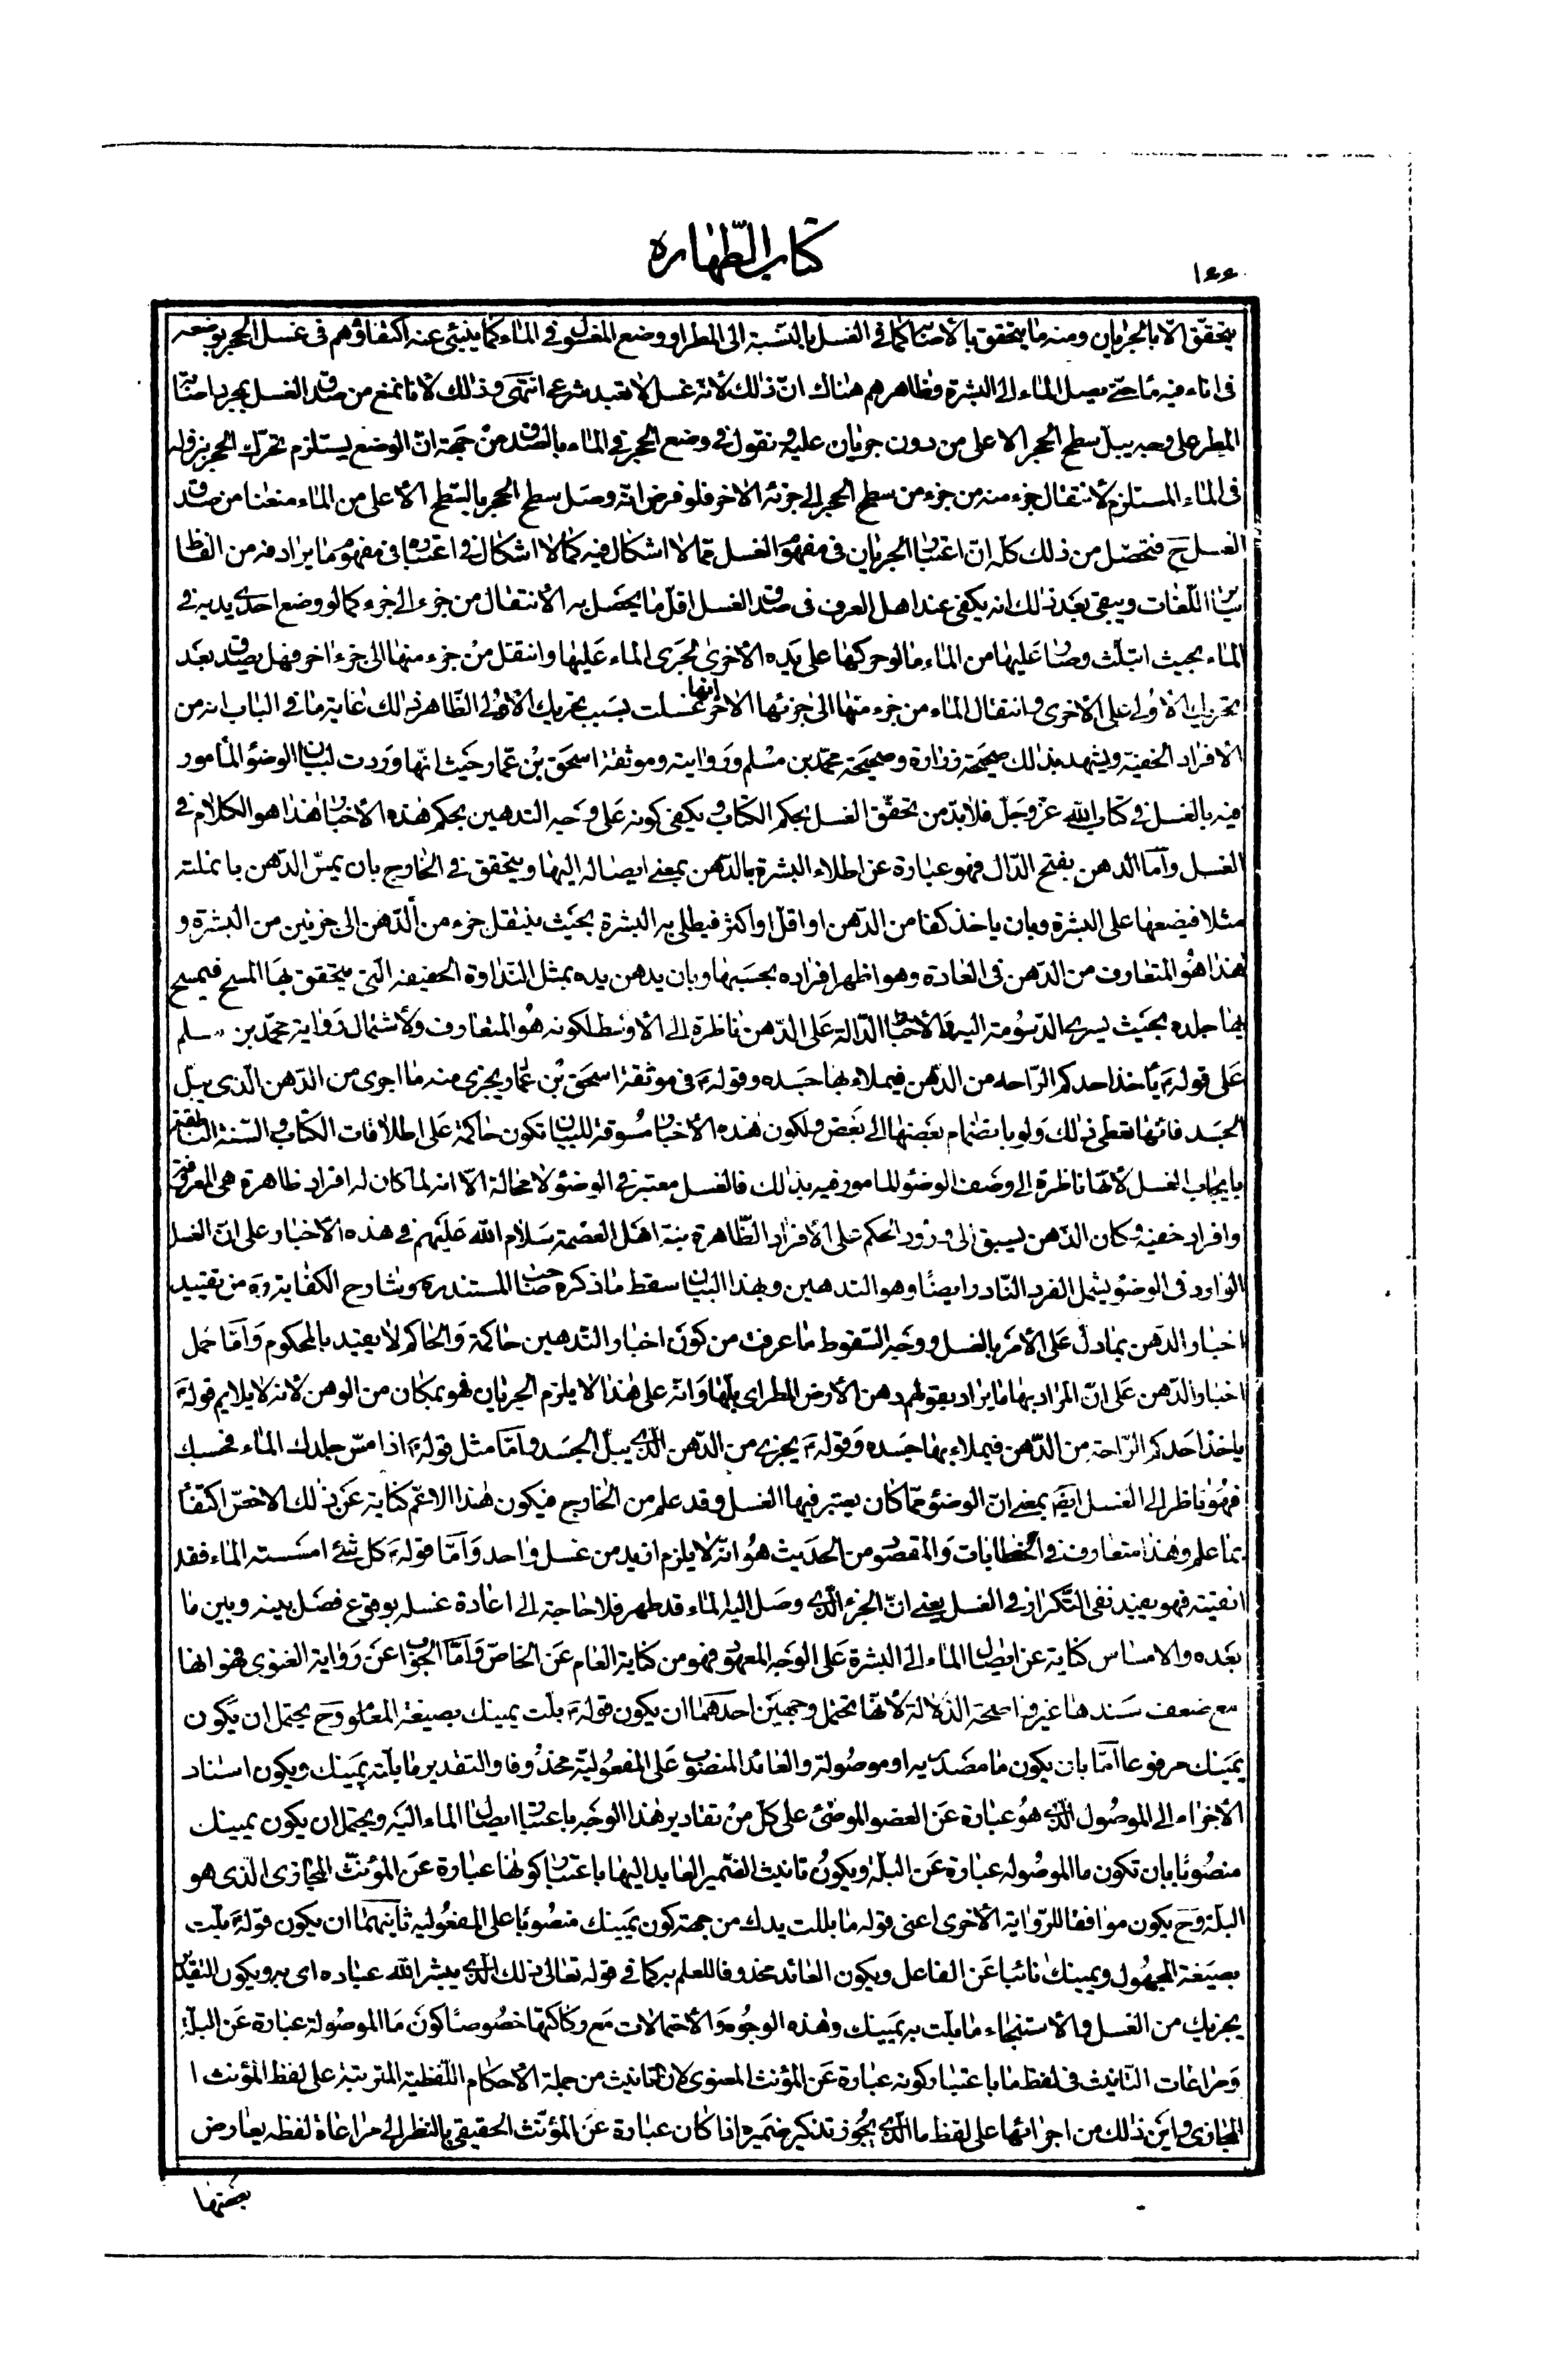 ١٤٤
كتاب الطّهارة
يتحقّق الّا بالجريان ومنه ما يتحقق بالأصابة كما في الغسل بالنّسبة الى المطر او وضع المغسول في الماء كما ينبئ عنه اكتفاؤهم في غسل الحجر بوضعه
في اناء فيه ماء حتّى يصل الماء الى البشرة وظاهرهم هناك انّ ذلك لأنّه غسل لا تعبد شرعي انتهى وذلك لأنا نمنع من صدق الغسل بمجرد اصابة
المطر على وجه يبلّ سطح الحجر الاعلى من دون جريان عليه ونقول في وضع الحجر في الماء بالصدق من جهة انّ الوضع يستلزم تحرّك الحجر بنزوله
في الماء المستلزم لأنتقال جزء منه من جزء من سطح الحجر الى جزئه الأخر فلو فرض انّه وصل سطح الحجر بالسّطح الأعلى من الماء منعنا من صدق
الغسل ح فتحصّل من ذلك كلّه انّ اعتبار الجريان في مفهوم الغسل ممّا لا اشكال فيه كما لا اشكال في اعتباره في مفهوم ما يرادفه من الفاظ
سائر اللّغات ويبقى بعد ذلك انه يكفى عند اهل العرف في صدق الغسل اقلّ ما يحصل به الأنتقال من جزء الى جزء كما لو وضع احدى يديه في
الماء بحيث ابتلّت وصار عليها من الماء ما لو حركها على يده الأخرى لجرى الماء عليها وانتقل من جزء منها الى جزء اخر فهل يصدق بعد
تحريك الأولى على الأخرى وانتقال الماء من جزء منها الى جزئها الأخر انها غسلت بسبب تحريك الأولى الظّاهر ذلك غاية ما في الباب انه من
الأفراد الخفيّة ويشهد بذلك صحيحة زرارة وصحيحة محمّد بن مسلم وروايته وموثقة اسحق بن عمّار حيث انّها وردت لبيان الوضوء المأمور
فيه بالغسل في كتاب الله عزّ وجلّ فلا بدّ من تحقّق الغسل بحكم الكتاب ويكفي كونه على وجه التدهين بحكم هذه الأخبار هذا هو الكلام في
الغسل وامّا الدهن بفتح الدّال فهو عبارة عن اطلاء البشرة بالدّهن بمعنى ايصاله اليها ويتحقق في الخارج بان يمسّ الدّهن بانملته
مثلا فيضعها على البشرة وبان ياخذ كفا من الدّهن او اقلّ او اكثر فيطلي به البشرة بحيث ينتقل جزء من الدّهن الى جزئين من البشرة و
هذا هو المتعارف من الدّهن في العادة وهو اظهر افراده بحسبها وبان يدهن يده بمثل النّداوة الخفيفة الّتي يتحقق بها المسح فيمسح
بها جلده بحيث يسرى الدّسومة اليه والأخبار الدّالة على الدّهن ناظرة الى الأوسط لكونه هو المتعارف ولأشتمال رواية محمّد بن مسلم
على قوله ع يأخذ احدكم الرّاحه من الدّهن فيملاء بها جسده وقوله ع في موثقة اسحق بن عمّار يجزى منه ما اجرى من الدّهن الّذي يبلّ
الجسد فانّها تعطى ذلك ولو بانضمام بعضها الى بعض ولكون هذه الأخبار مسوقة للبيان تكون حاكمة على اطلاقات الكتاب والسّنة الناطقة
بايجاب الغسل لأنّها ناظرة الى وصف الوضوء المامور فيه بذلك فالغسل معتبر في الوضوء لا محالة الّا انه لما كان له افراد ظاهرة هي المعروفة
وافراد خفيّة وكان الذّهن يسبق الى ورود الحكم على الأفراد الظّاهرة نبّه اهل العصمة سلام الله عليهم في هذه الأخبار على انّ الغسل
الوارد في الوضوء يشمل الفرد النّادر ايضًا وهو التدهين وبهذا البيان سقط ما ذكره صاحب المستند ره وشارح الكفاية ره من تقييد
اخبار الدّهن بما دلّ على الأمر بالغسل ووجه السّقوط ما عرفت من كون اخبار التّدهين حاكمة والحاكم لا يقيد بالمحكوم وامّا حمل
اخبار الدّهن على انّ المراد بها ما يراد بقولهم دهن الأرض المطر اى بلّها وانّه على هذا لا يلزم الجريان فهو بمكان من الوهن لأنه لا يلايم قوله ع
ياخذ احدكم الرّاحة من الدّهن فيملاء بها جسده وقوله ع يجزى من الدّهن الّذي يبلّ الجسد وامّا مثل قوله ع اذا مسّ جلدك الماء فحسبك
فهو ناظر الى الغسل ايضًا بمعنى انّ الوضوء ممّا كان يعتبر فيها الغسل وقد علم من الخارج فيكون هذا الاعمّ كناية عن ذلك الأخصّ اكتفاء
بما علم وهذا متعارف في الخطابات والمقصود من الحديث هو انّه لا يلزم ازيد من غسل واحد وامّا قوله ع كلّ شئ امسسته الماء فقد
انقيته فهو يفيد نفى التّكرار في الغسل يعني انّ الجزء الّذي وصل اليه الماء قد طهر فلا حاجة الى اعادة غسله بوقوع فصل بينه وبين ما
بعده والامساس كناية عن ايصال الماء الى البشرة على الوجه المعهود فهو من كناية العام عن الخاصّ وامّا الجواب عن رواية الغنوى فهو انها
مع ضعف سندها غير واضحة الدّلالة لأنّها تحتمل وجهين احدهما ان يكون قوله ع بلّت يمينك بصيغة المعلوم وح يحتمل ان يكون
يمينك مرفوعا امّا بان يكون ما مصدريه او موصولة والعائد المنصوب على المفعوليّة محذوفا والتقدير ما بلّته يمينك ويكون اسناد
الأجزاء الى الموصول الّذي هو عبارة عن العضو الموضئ على كلّ من تقادير هذا الوجه باعتبار ايصال الماء اليه ويحتمل ان يكون يمينك
منصوبًا بان تكون ما الموصوله عبارة عن البلّة ويكون تانيث الضّمير العايد اليها باعتبار كونها عبارة عن المؤنّث المجازى الّذى هو
البلّة وح يكون موافقا للرّواية الأخرى اعنى قوله ما بللت يدك من جهة كون يمينك منصوبًا على المفعوليه ثانيهما ان يكون قوله ع بلّت
بصيغة المجهول ويمينك نائبا عن الفاعل ويكون العائد محذوفا للعلم به كما في قوله تعالى ذلك الّذي يبشر الله عباده اى به ويكون التقدير
يجزيك من الغسل والأستنجاء ما بلّت به يمينك وهذه الوجوه والأحتمالات مع ركاكتها خصوصًا كون ما الموصولة عبارة عن البلّة
ومراعات التّانيث في لفظ ما باعتبار كونه عبارة عن المؤنث المعنوى لان التانيث من جملة الأحكام اللّفظية المترتبة على لفظ المؤنث ا
المجازى واين ذلك من اجرائها على لفظ ما الّذي يجوز تذكير ضميره اذا كان عبارة عن المؤنّث الحقيقي بالنظر الى مراعاة لفظه يعارض
بعضها